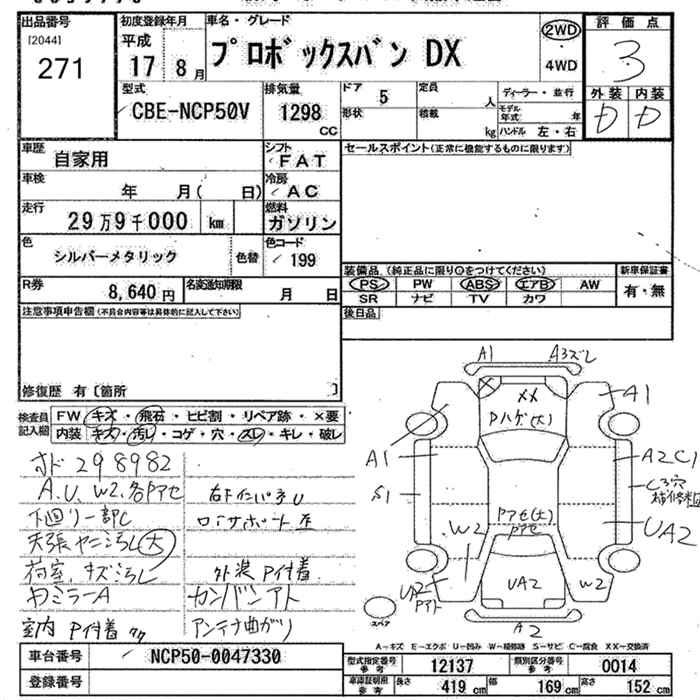 出品番号
[2044]
271
初度登録年月
平成
17年 8月
車名・グレード
プロボックスバン DX
2WD
・
4WD
評価点
3
外装 内装
D D
型式
CBE-NCP50V
排気量
1298
cc
ドア 5
形状
定員 人
積載 kg
ディーラー・並行
モデル年式 年
ハンドル 左・右
車歴
自家用
シフト
FAT
車検
年 月( 日)
冷房
AC
走行
29万9千000 km
燃料
ガソリン
色
シルバーメタリック
色替
色コード
199
R券
8,640円
名変通知期限
月 日
セールスポイント(正常に機能するものに限ります)
装備品(純正品に限り○をつけてください)
PS PW ABS エアB AW
SR ナビ TV カワ
新車保証書
有・無
後日品
注意事項申告欄(不具合内容等は具体的に記入して下さい)
修復歴 有〔箇所 〕
検査員
記入欄
FW キズ・飛石・ヒビ割・リペア跡・×要
内装 キズ・汚レ・コゲ・穴・スレ・キレ・破レ
オド 298982
A.U.W2.各Pアセ
下回リ一部C
天張ヤニ汚レ(大)
荷室、キズ汚レ
ドミラーA
室内 P付着
外装 P付着
カンバンアト
アンテナ曲がり
A1 A3ズレ
A1
XX
Pハゲ(大)
A1
A2C1
S1
C3穴
Pアセ(大)
Pアセ
W2
UA2
UA2
Pアト
UA2
W2
A2
スペア
A−キズ E−エクボ U−凹み W−補修跡 S−サビ C−腐食 XX−交換済
車台番号
NCP50-0047330
登録番号
型式指定番号
参考
12137
類別区分番号
参考
0014
車庫証明用
参考
長さ 419 cm 幅 169 cm 高さ 152 cm